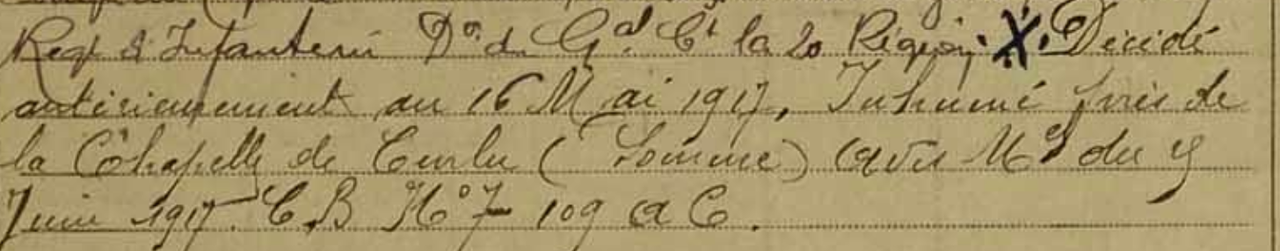 Regt d'Infanterie Don du Gal Ct la 20 Région. X. Décédé
antérieurement au 16 Mai 1917, Inhumé près de
la Chapelle de Curlu (Somme) avis Mel du 9
Juin 1917. C.B No 7 109 a C.